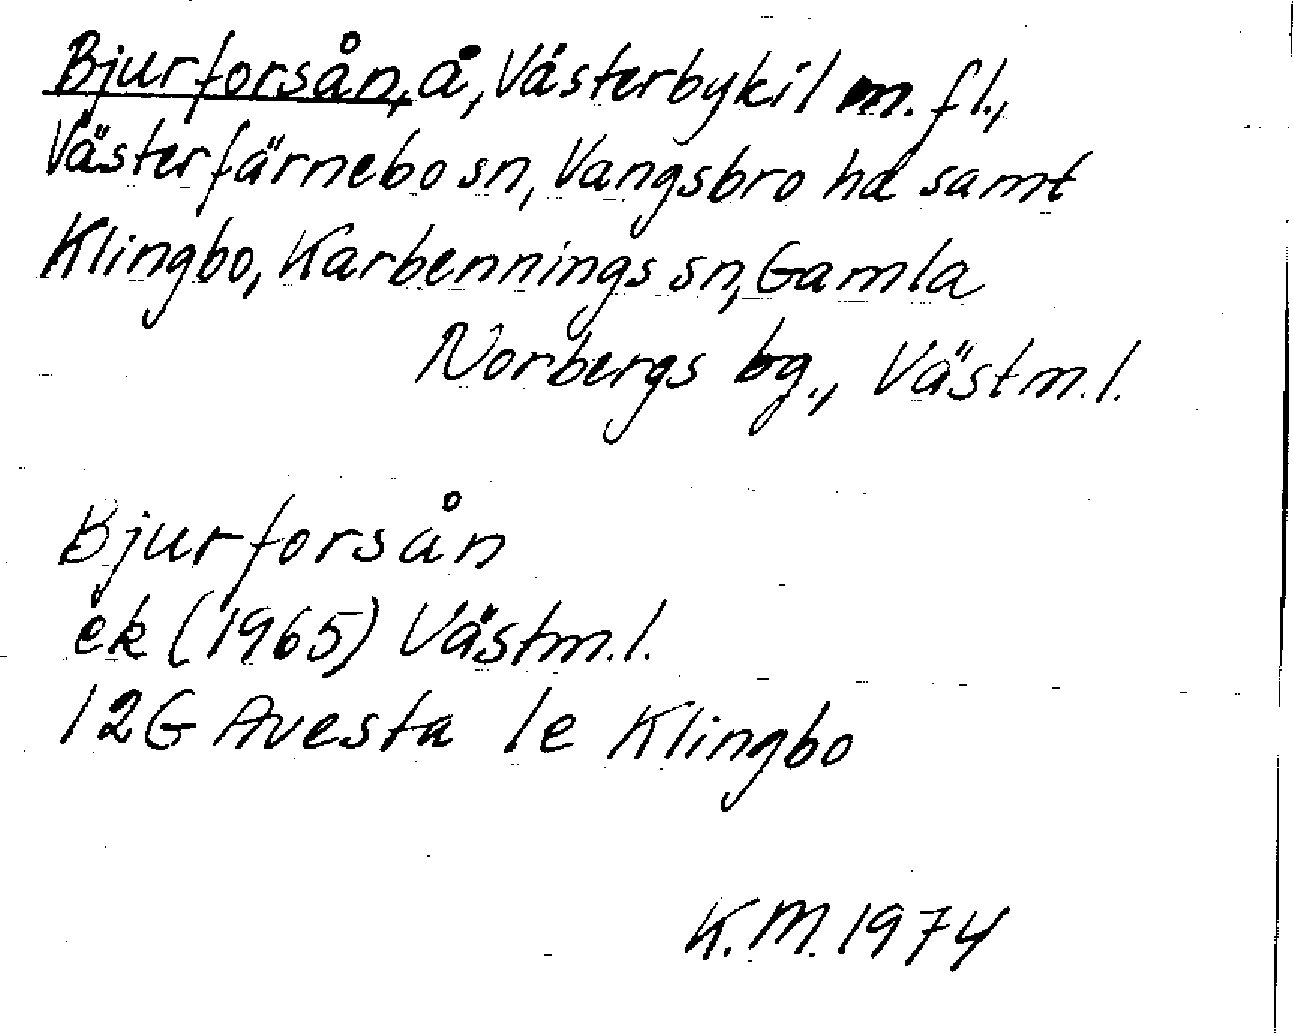 Bjurforsån, å, Västerbykil m.fl.,
Västerfärnebo sn, Vangsbro hd samt
Klingbo, Karbennings sn, Gamla
Norbergs bg., Västm.l.
Bjurforsån
ek (1965) Västm.l.
12G Avesta 1e Klingbo
K.M. 1974